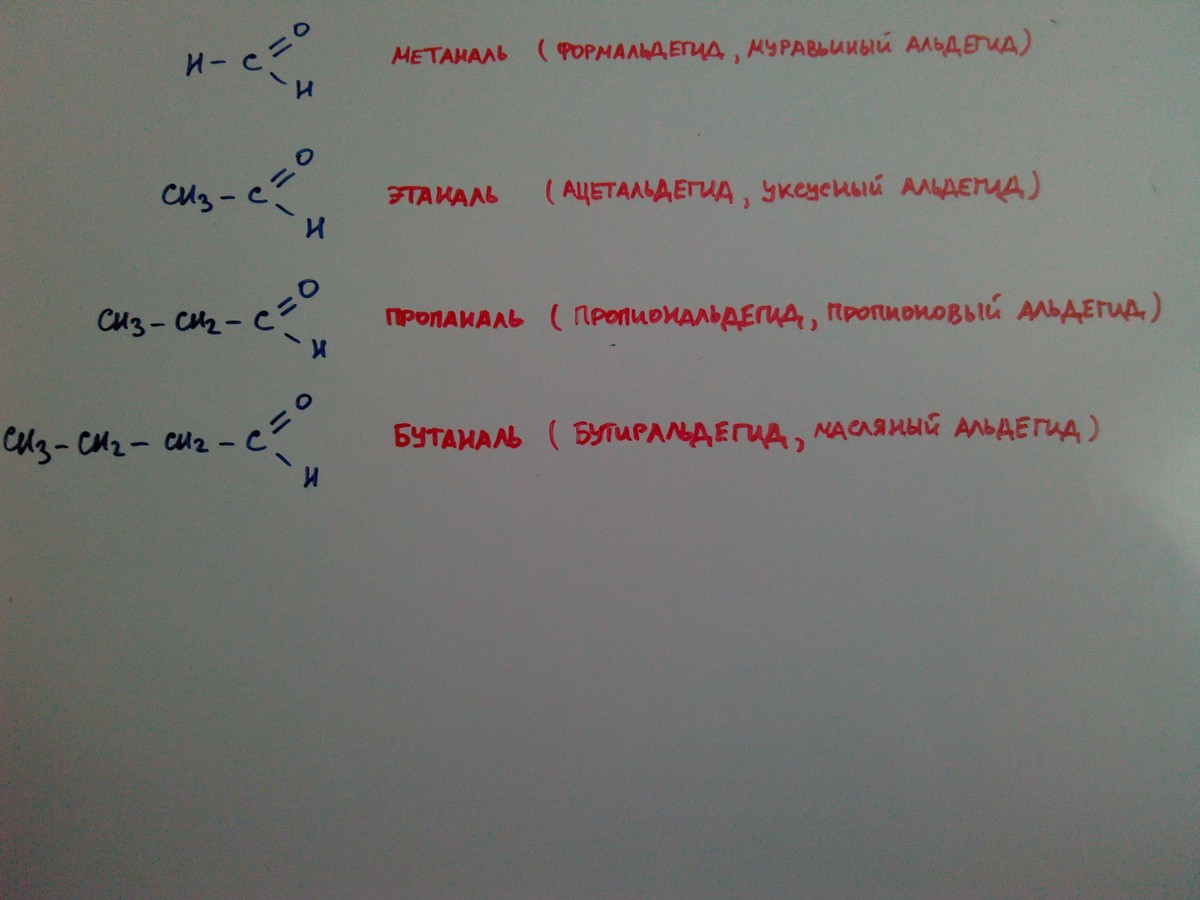 H - C =O - H МЕТАНАЛЬ (ФОРМАЛЬДЕГИД, МУРАВЬИНЫЙ АЛЬДЕГИД)
CH3 - C =O - H ЭТАНАЛЬ (АЦЕТАЛЬДЕГИД, УКСУСНЫЙ АЛЬДЕГИД)
CH3 - CH2 - C =O - H ПРОПАНАЛЬ (ПРОПИОНАЛЬДЕГИД, ПРОПИОНОВЫЙ АЛЬДЕГИД)
CH3 - CH2 - CH2 - C =O - H БУТАНАЛЬ (БУТИРАЛЬДЕГИД, МАСЛЯНЫЙ АЛЬДЕГИД)